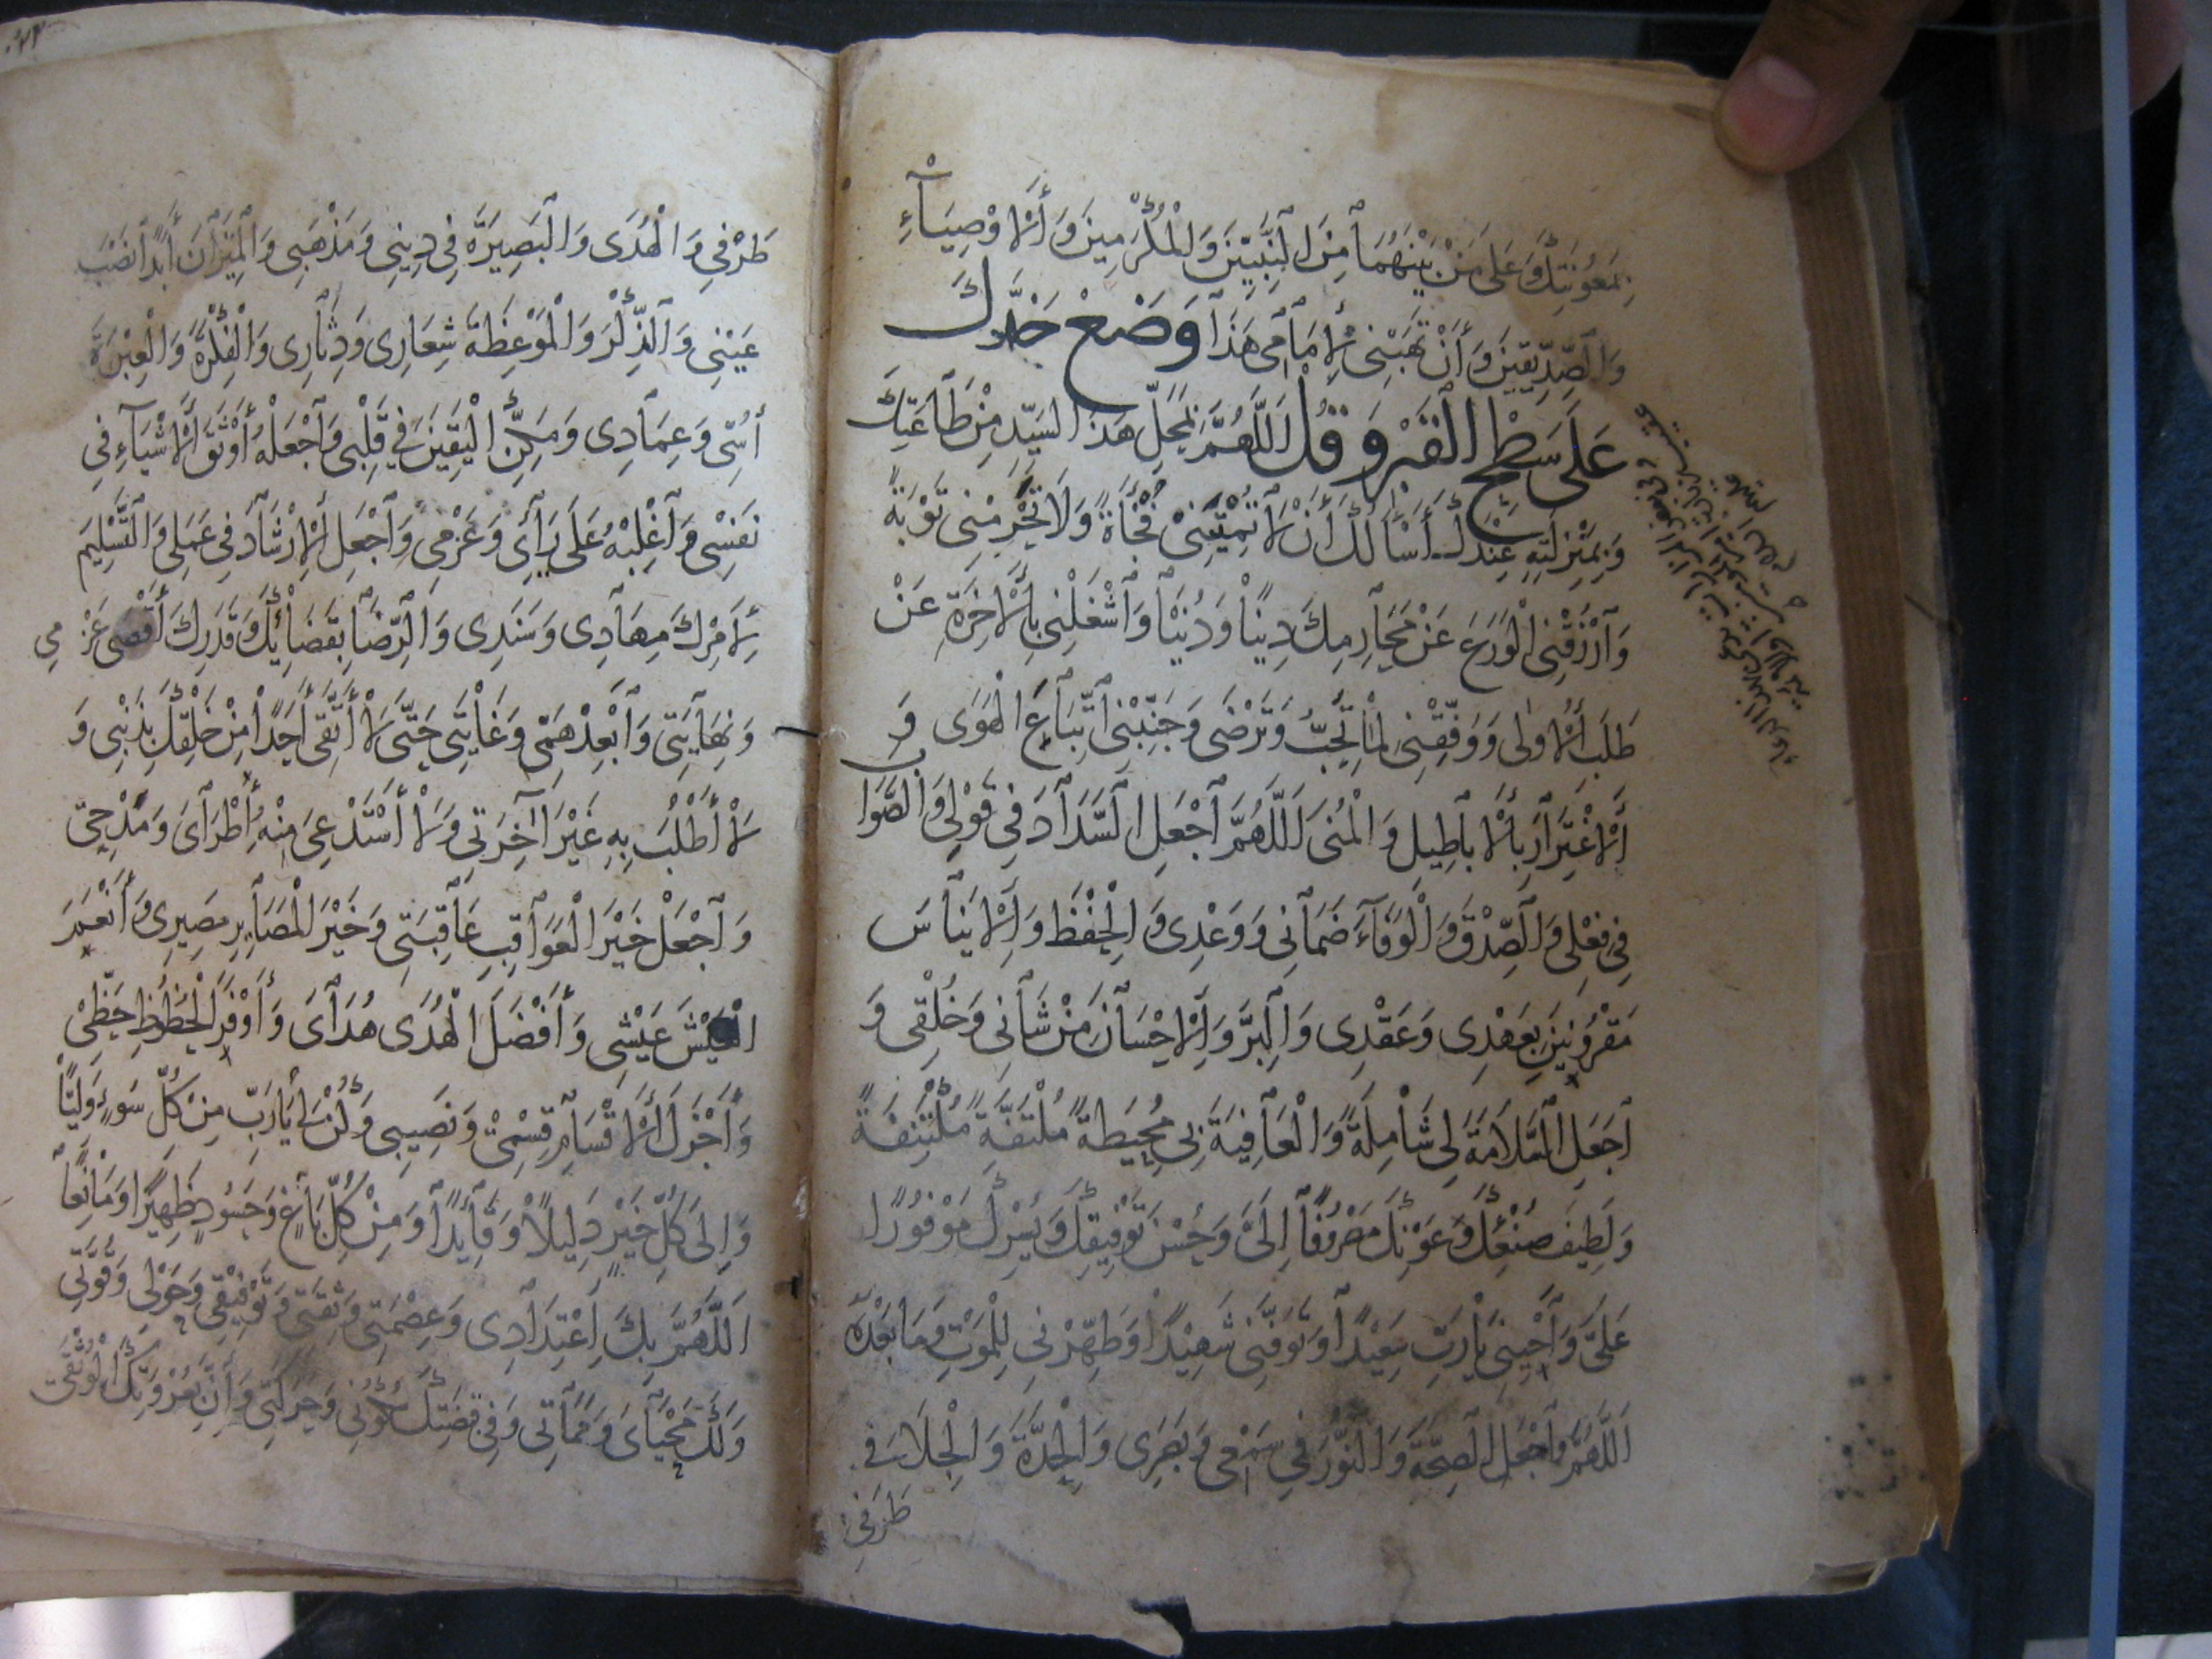 بِمَعُونَتِكَ وَعَلَى مَنْ بَيْنَهُمَا مِنَ النَّبِيِّينَ وَالْمُكْرَمِينَ وَالْأَوْصِيَاءِ
وَالصِّدِّيقِينَ وَأَنْ تَهَبَنِي لِإِمَامِي هَذَا وَضَعْ خَدَّكَ
عَلَى سَطْحِ الْقَبْرِ وَقُلْ اَللَّهُمَّ بِمَحَلِّ هَذَا السَّيِّدِ مِنْ طَاعَتِكَ
وَبِمَنْزِلَتِهِ عِنْدَكَ أَسْأَلُكَ أَنْ لَا تُمِيتَنِي فُجْأَةً وَلَا تَحْرِمْنِي تَوْبَةً
وَارْزُقْنِي الْوَرَعَ عَنْ مَحَارِمِكَ دِينًا وَدُنْيَا وَاشْغَلْنِي بِالْآخِرَةِ عَنْ
طَلَبِ الْأُولَى وَوَفِّقْنِي لِمَا تُحِبُّ وَتَرْضَى وَجَنِّبْنِي اتِّبَاعَ الْهَوَى وَ
الْاِغْتِرَارَ بِالْأَبَاطِيلِ وَالْمُنَى اَللَّهُمَّ اجْعَلِ السَّدَادَ فِي قَوْلِي وَالصَّوَابَ
فِي فِعْلِي وَالصِّدْقَ وَالْوَفَاءَ ضَمَانِي وَوَعْدِي وَالْحِفْظَ وَالْإِينَاسَ
مَقْرُونَيْنِ بِعَهْدِي وَعَقْدِي وَالْبِرَّ وَالْإِحْسَانَ مِنْ شَأْنِي وَخُلُقِي وَ
اجْعَلِ السَّلَامَةَ لِي شَامِلَةً وَالْعَافِيَةَ بِي مُحِيطَةً مُلْتَفَّةً مُكْتَنِفَةً
وَلَطِيفَ صُنْعِكَ وَعَوْنِكَ مَصْرُوفًا إِلَيَّ وَحُسْنَ تَوْفِيقِكَ وَيُسْرِكَ مَوْفُورًا
عَلَيَّ وَأَحْيِنِي يَا رَبِّ سَعِيدًا وَتَوَفَّنِي شَهِيدًا وَطَهِّرْنِي لِلْمَوْتِ وَمَا بَعْدَهُ
اَللَّهُمَّ وَاجْعَلِ الصِّحَّةَ وَالنُّورَ فِي سَمْعِي وَبَصَرِي وَالْجِدَّةَ وَالْجِلَاءَ فِي
طَرَفِي
طَرْفِي وَالْهُدَى وَالْبَصِيرَةَ فِي دِينِي وَمَذْهَبِي وَالْمِيزَانَ أَبَدًا نَصْبَ
عَيْنِي وَالذِّكْرَ وَالْمَوْعِظَةَ شِعَارِي وَدِثَارِي وَالْفِكْرَةَ وَالْعِبْرَةَ
أُنْسِي وَعِمَادِي وَمَكِّنِ الْيَقِينَ فِي قَلْبِي وَاجْعَلْهُ أَوْثَقَ الْأَشْيَاءِ فِي
نَفْسِي وَاغْلِبْهُ عَلَى رَأْيِي وَعَزْمِي وَاجْعَلِ الْإِرْشَادَ فِي عَمَلِي وَالتَّسْلِيمَ
لِأَمْرِكَ مِهَادِي وَسَنَدِي وَالرِّضَا بِقَضَائِكَ وَقَدَرِكَ أَقْصَى عَزْمِي
وَنِهَايَتِي وَأَبْعَدَ هَمِّي وَغَايَتِي حَتَّى لَا أَتَّقِيَ أَحَدًا مِنْ خَلْقِكَ بِذَنْبِي وَ
لَا أَطْلُبَ بِهِ غَيْرَ آخِرَتِي وَلَا أَسْتَدْعِيَ مِنْهُ إِطْرَايَ وَمَدْحِي
وَاجْعَلْ خَيْرَ الْعَوَاقِبِ عَاقِبَتِي وَخَيْرَ الْمَصَايِرِ مَصِيرِي وَأَنْعَمَ
الْعَيْشِ عَيْشِي وَأَفْضَلَ الْهُدَى هُدَايَ وَأَوْفَرَ الْحُظُوظِ حَظِّي
وَأَجْزَلَ الْأَقْسَامِ قِسْمِي وَنَصِيبِي وَكُنْ لِي يَا رَبِّ مِنْ كُلِّ سُوءٍ وَلِيًّا
وَإِلَى كُلِّ خَيْرٍ دَلِيلًا وَقَائِدًا وَمِنْ كُلِّ بَاغٍ وَحَسُودٍ ظَهِيرًا وَمَانِعًا
اَللَّهُمَّ بِكَ اعْتِدَادِي وَعِصْمَتِي وَثِقَتِي وَتَوْفِيقِي وَحَوْلِي وَقُوَّتِي
وَلَكَ مَحْيَايَ وَمَمَاتِي وَفِي قَبْضَتِكَ سُكُونِي وَحَرَكَتِي وَأَنَّ بِعُرْوَتِكَ الْوُثْقَى